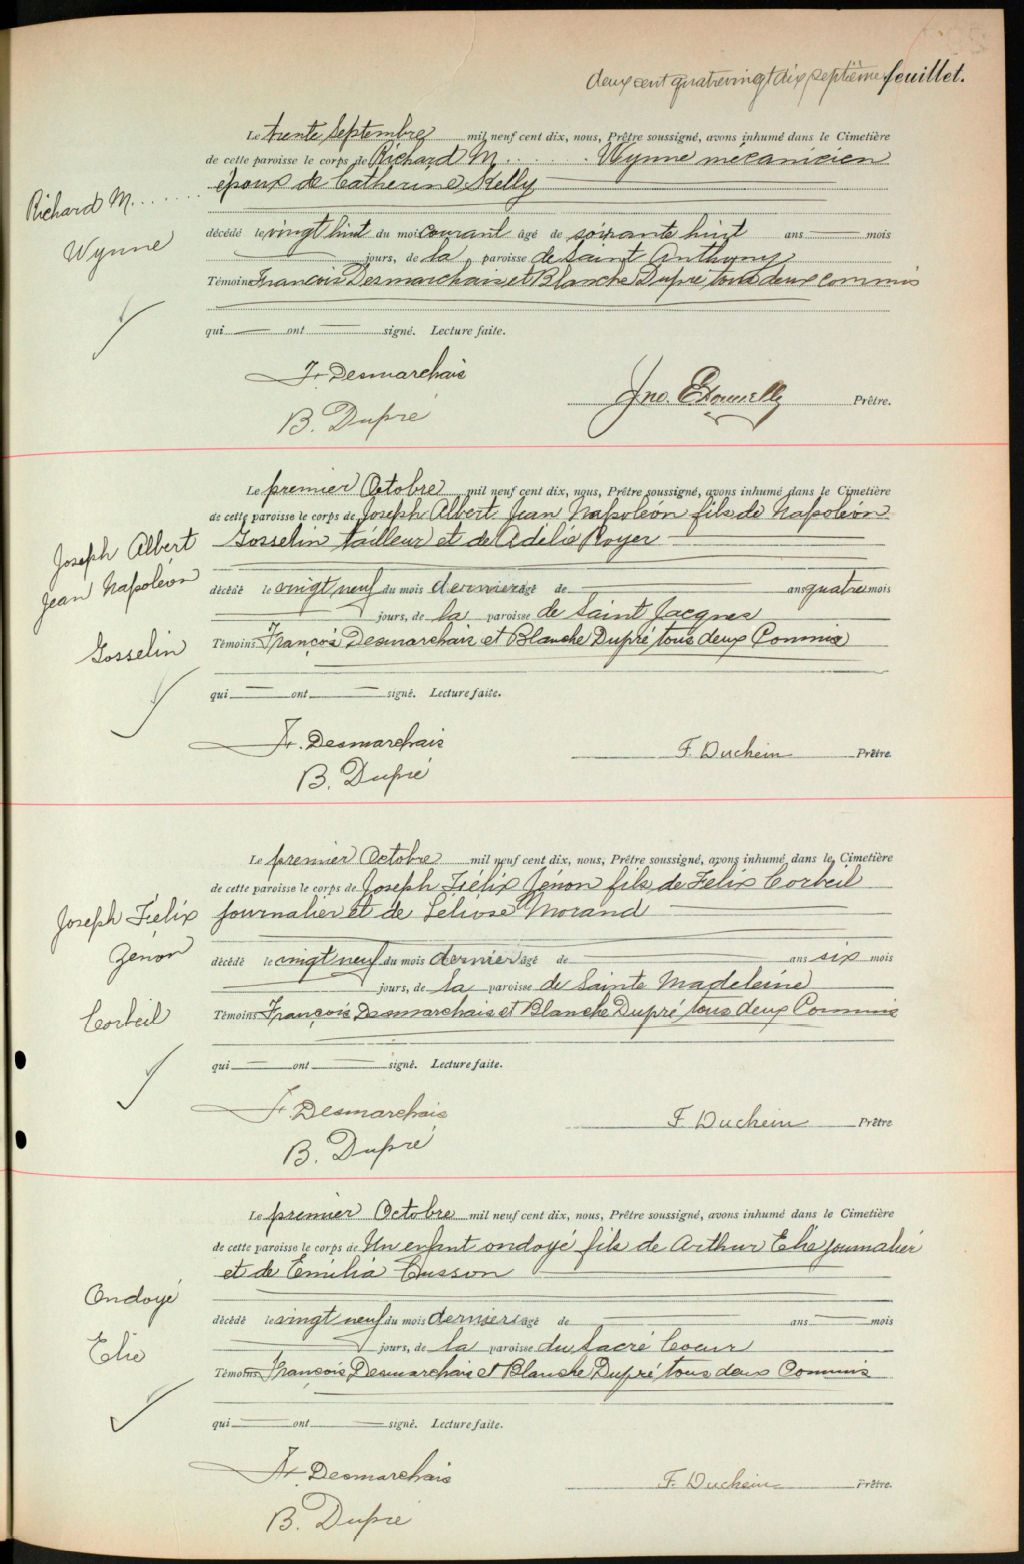 deux cent quatrevingt dix septième feuillet.
Le trente Septembre mil neuf cent dix, nous, Prêtre soussigné, avons inhumé dans le Cimetière
de cette paroisse le corps de Richard M....... Wynne mécanicien
époux de Catherine Kelly
Richard M.......
Wynne
décédé le vingt huit du mois courant âgé de soixante huit ans mois
jours, de la paroisse de Saint Anthony
Témoins François Desmarchais et Blanche Dupré tous deux commis
qui ont signé. Lecture faite.
F. Desmarchais
B. Dupré
Jno. E. Donnelly Prêtre.
Le premier Octobre mil neuf cent dix, nous, Prêtre soussigné, avons inhumé dans le Cimetière
de cette paroisse le corps de Joseph Albert Jean Napoléon fils de Napoléon
Gosselin tailleur et de Adélie Royer
Joseph Albert
Jean Napoléon
Gosselin
décédé le vingt neuf du mois dernier âgé de ans quatre mois
jours, de la paroisse de Saint Jacques
Témoins François Desmarchais et Blanche Dupré tous deux Commis
qui ont signé. Lecture faite.
F. Desmarchais
B. Dupré
F. Duchein Prêtre.
Le premier Octobre mil neuf cent dix, nous, Prêtre soussigné, avons inhumé dans le Cimetière
de cette paroisse le corps de Joseph Félix Zénon fils de Felix Corbeil
journalier et de Morand
Joseph Félix
Zénon
Corbeil
décédé le vingt neuf du mois dernier âgé de ans six mois
jours, de la paroisse de Sainte Madeleine
Témoins François Desmarchais et Blanche Dupré tous deux Commis
qui ont signé. Lecture faite.
F. Desmarchais
B. Dupré
F. Duchein Prêtre
Le premier Octobre mil neuf cent dix, nous, Prêtre soussigné, avons inhumé dans le Cimetière
de cette paroisse le corps de Un enfant ondoyé fils de Arthur Elie journalier
et de Emilia Cusson
Ondoyé
Elie
décédé le vingt neuf du mois dernier âgé de ans mois
jours, de la paroisse du Sacré Coeur
Témoins François Desmarchais et Blanche Dupré tous deux Commis
qui ont signé. Lecture faite.
F. Desmarchais
B. Dupré
F. Duchein Prêtre.